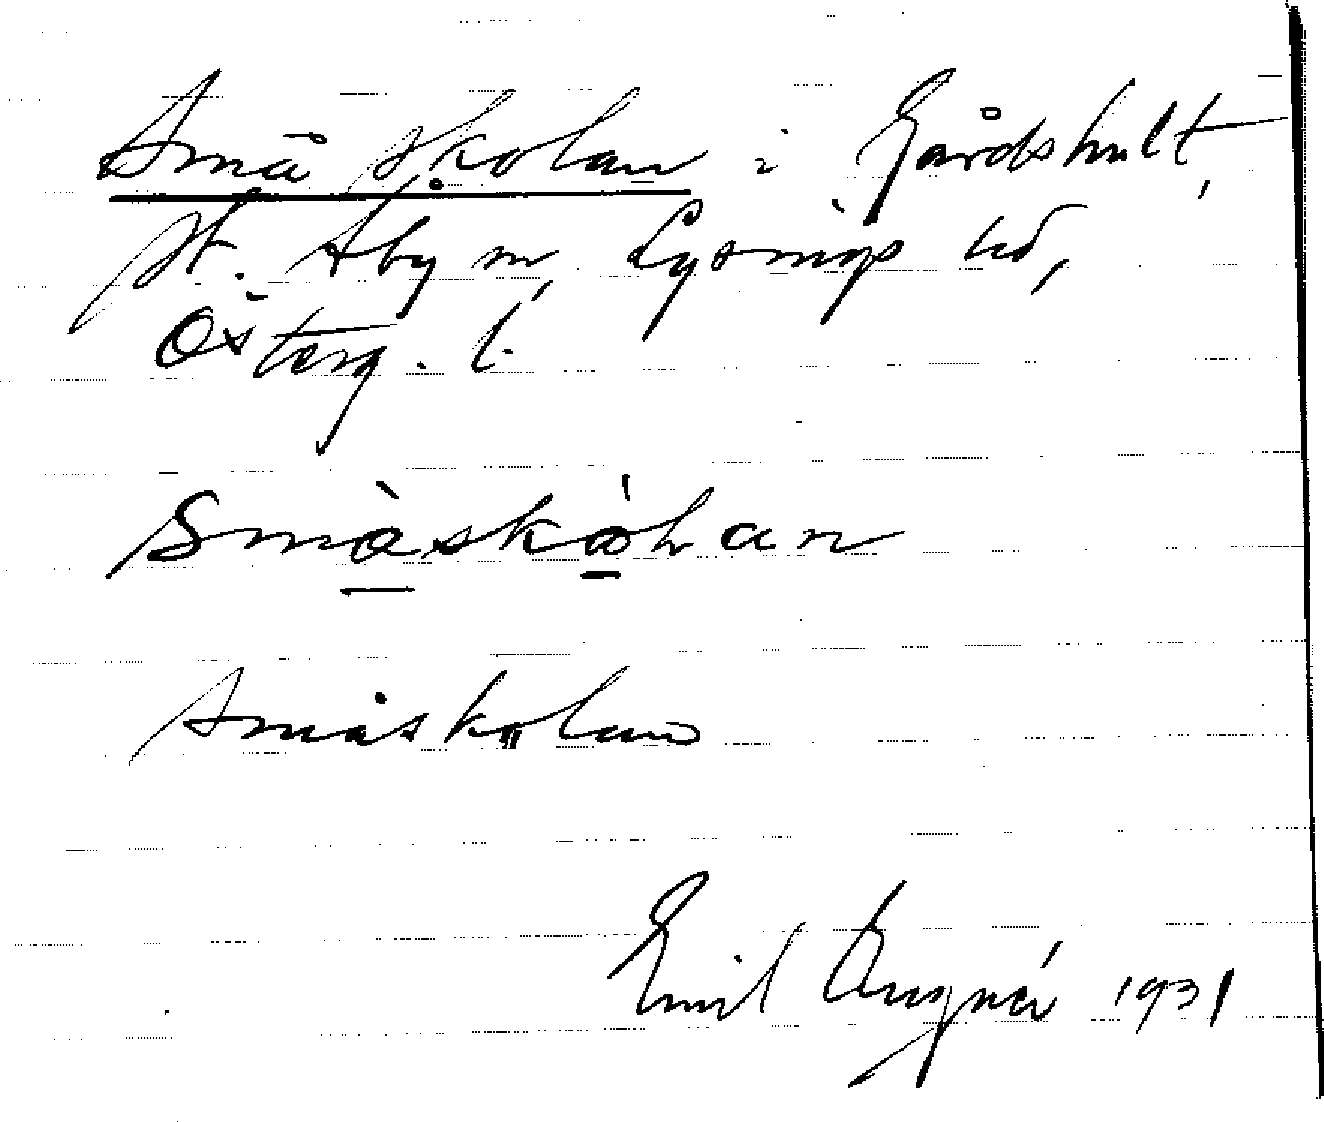 Småskolan i Gårdshult,
St. Åby sn, Lysings hd,
Österg. l.
Småskolan
Småskolan
Emil 1931